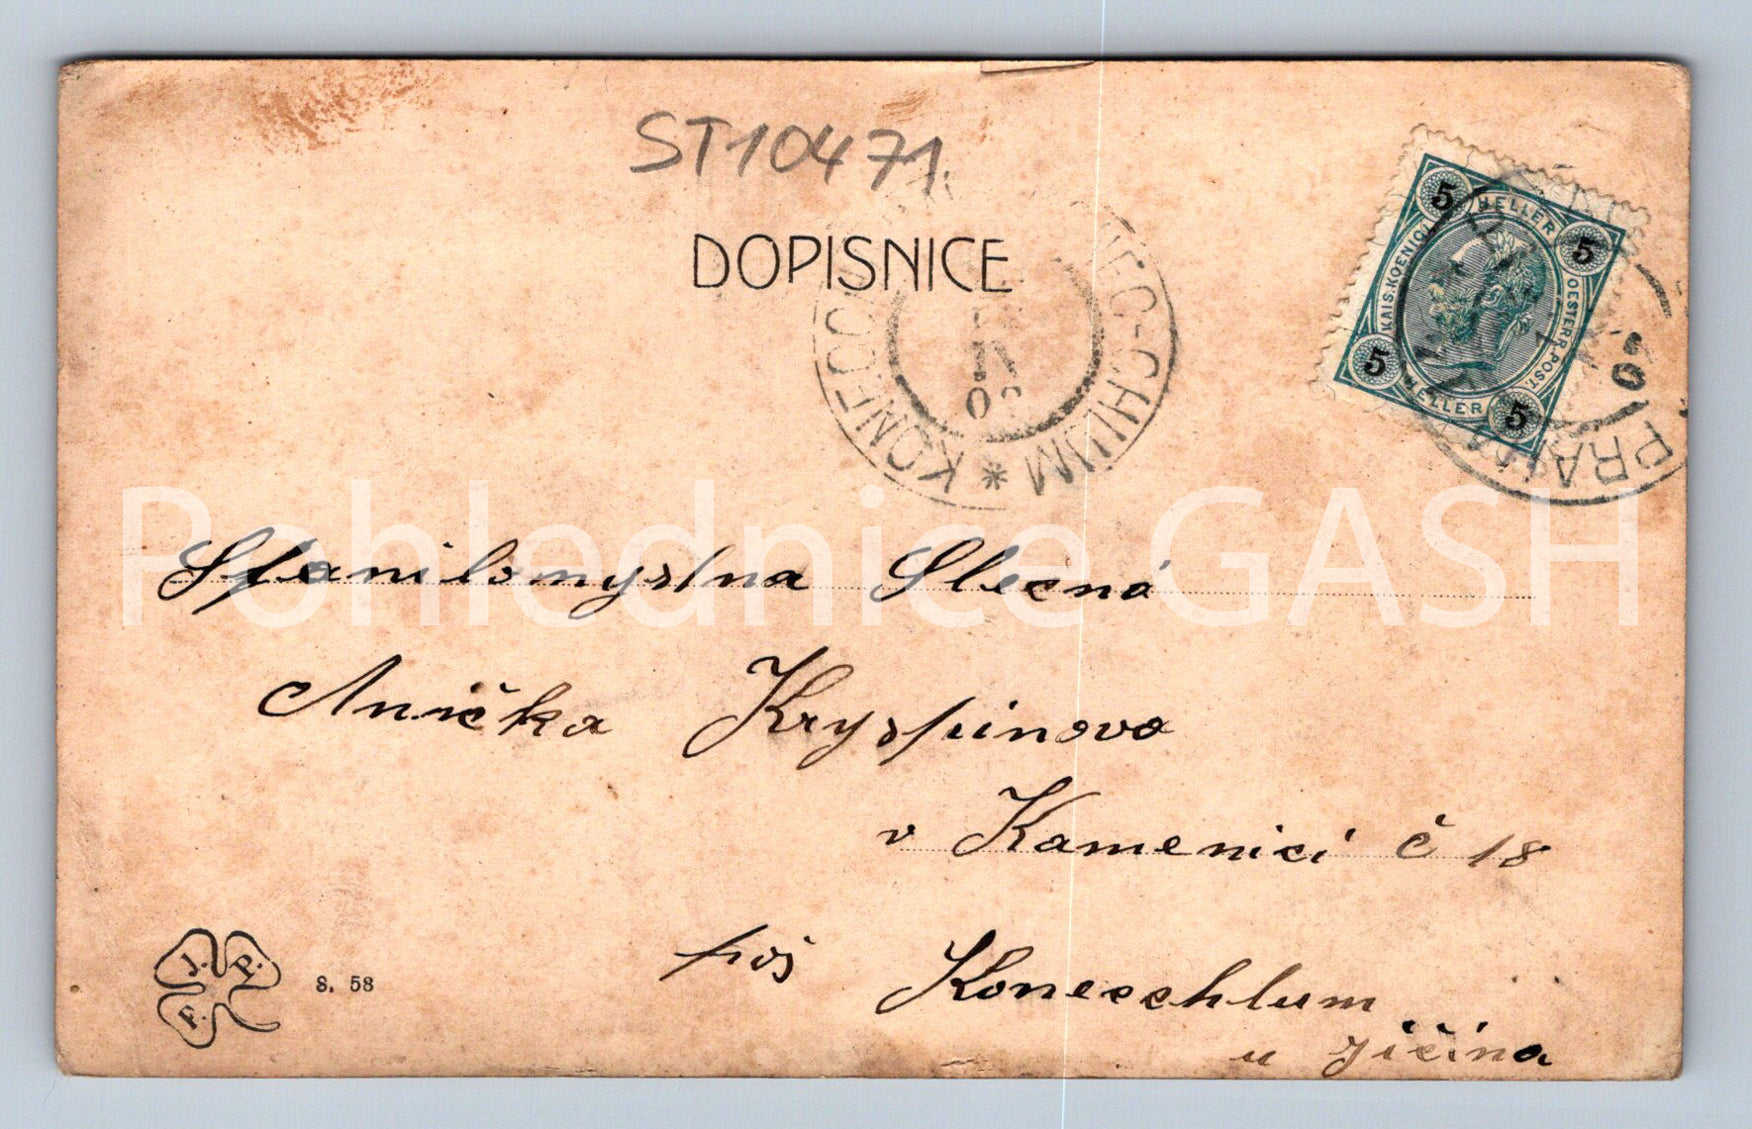 ST10471
DOPISNICE
5 HELLER 5
KAIS. KOENIGL. OESTERR. POST.
5 HELLER 5
KONEC-CHLUM * KONEC
IV
PRAHA
Pohlednice GASH
Slečná
Anička Kryspinova
v Kamenici č 18
pos Konecchlum
u Jičina
J. P. F.
S. 58